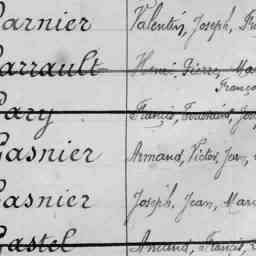 Garnier Valentin, Joseph, Fra
Garrault Henri, Pierre, Mar
Franço
Gary Francis, Toussaint, Jose
Gasnier Armand, Victor, Jean,
Gasnier Joseph, Jean, Marie
Gastel Amand, Francis,